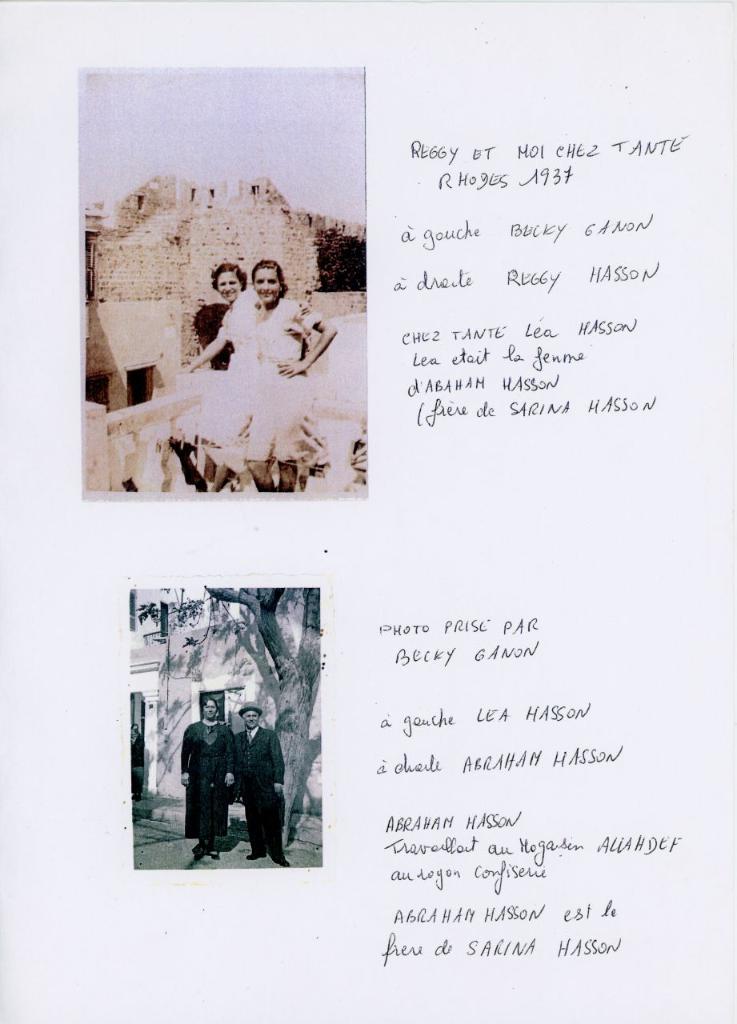 REGGY ET MOI CHEZ TANTE
RHODES 1937
à gauche BECKY GANON
à droite REGGY HASSON
CHEZ TANTE Léa HASSON
Lea etait la femme
d'ABAHAM HASSON
(frère de SARINA HASSON
PHOTO PRISE PAR
BECKY GANON
à gauche LEA HASSON
à droite ABRAHAM HASSON
ABRAHAM HASSON
Travaillait au Magasin ALIAHDEF
au rayon Confiserie
ABRAHAM HASSON est le
frere de SARINA HASSON